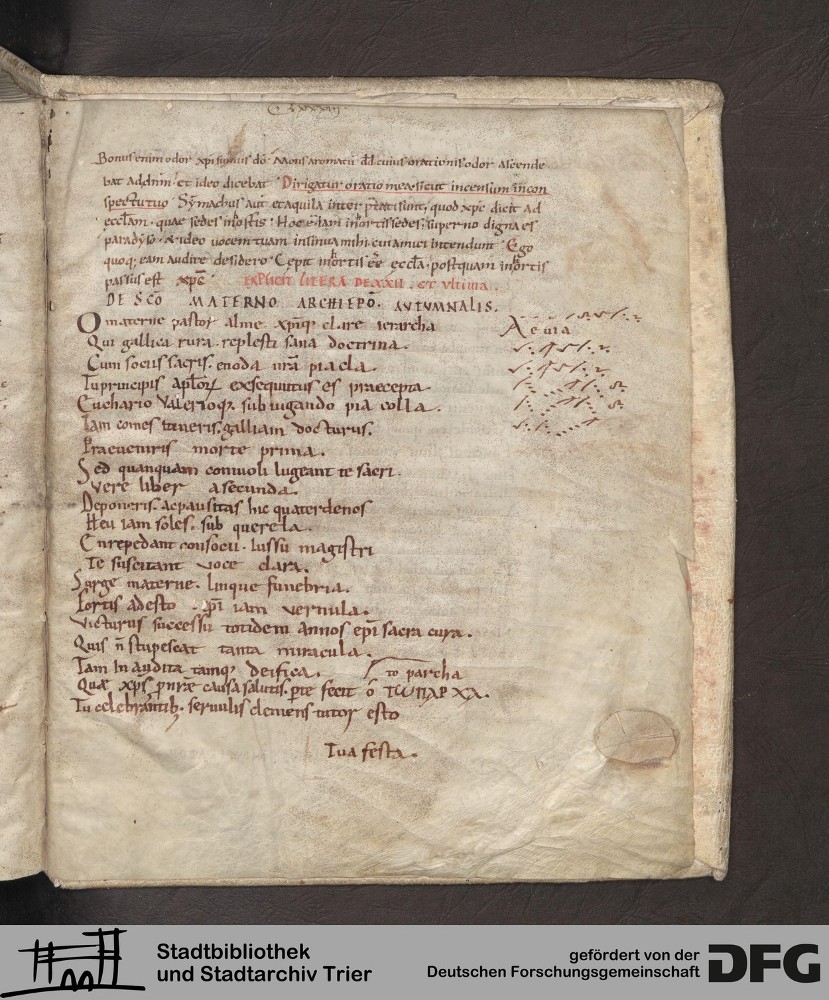 Bonus enim odor xpi sumus dō. Mons aromatū dd̄ cuius orationis odor ascende
bat ad dnm̄. et ideo dicebat. Dirigatur oratio mea sicut incensum in con
spectu tuo. Symachus aūt et aquila inter p̄tati sunt. quod xp̄c dicit ad
eccl̄am. quae sedes in ortis. Hoc ē iam in ortis sedes. superno digna es
paradyso. & ideo vocem tuam insinua mihi. cui amici intendunt. Ego
quoq; eam audire desidero. Cepit in ortis eē eccl̄a. postquam in ortis
passus est xp̄c. EXPLICIT LITERA DE XXII. ET ultima.
DE SC̄O MATERNO ARCHIEPŌ. AVTVMNALIS.
O materne pastor alme. xp̄iq; clare ierarcha Aevia
Qui gallica rura. replesti sana doctrina.
Cum sociis sacris. enoda nrā piacla.
Tu principis apl̄orum exsequutus es praecepta
Euchario Valerioq; subiugando pia colla.
Iam comes itineris. galliam docturus.
Praeveniris morte prima.
Sed quanquam convuoli lugeant te sacri.
Vere liber a secunda.
Deponeris. ac pausitas hic quaterdenos
Heu iam soles. sub querela.
Cn repedant consocii. iussu magistri
Te suscitant voce clara.
Surge materne. linque funebria.
Fortis adesto xp̄i iam vernula.
Victurus successu totidem annos epī sacra cura.
Quis n̄ stupescat tanta miracula.
Tam inaudita tamq; deifica. to parcha
Quae xp̄s p nrāe causa salutis. p te fecit ō ΤѠΠΑΡΧΑ.
Tu celebrantib; servulis clemens tutor esto
Tua festa.
Stadtbibliothek
und Stadtarchiv Trier
gefördert von der
Deutschen Forschungsgemeinschaft
DFG